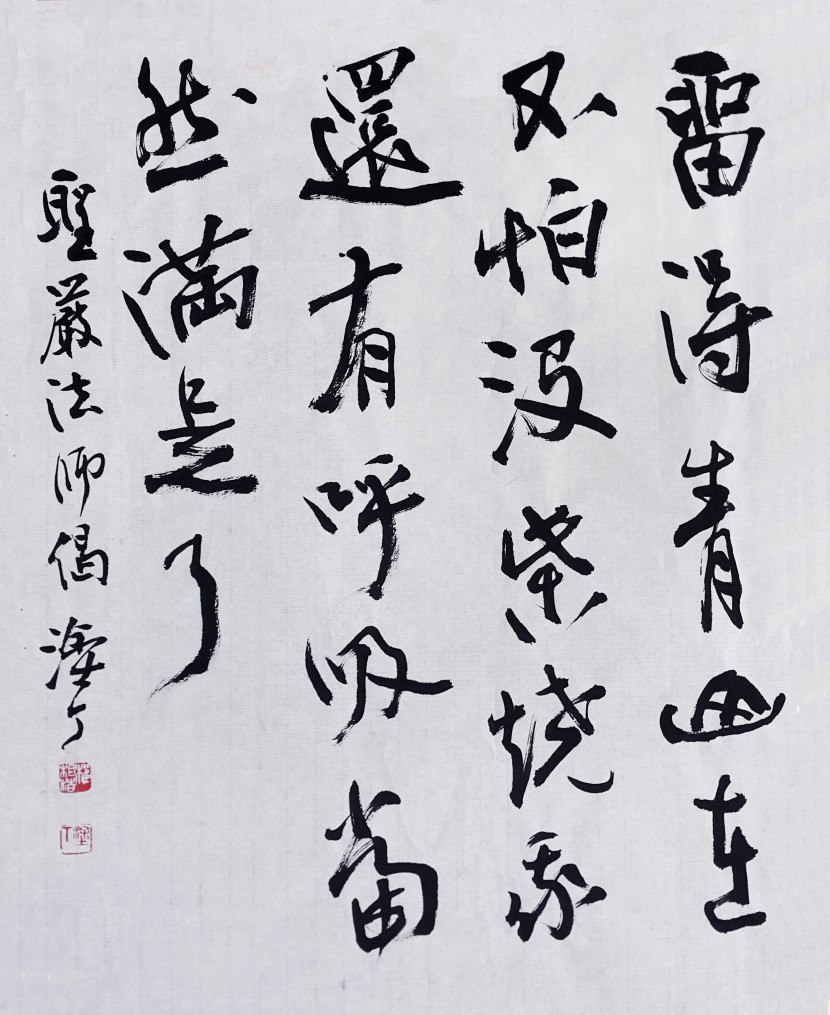 留得青山在
不怕沒柴燒我
還有呼吸當
然滿足了
聖嚴法師偈